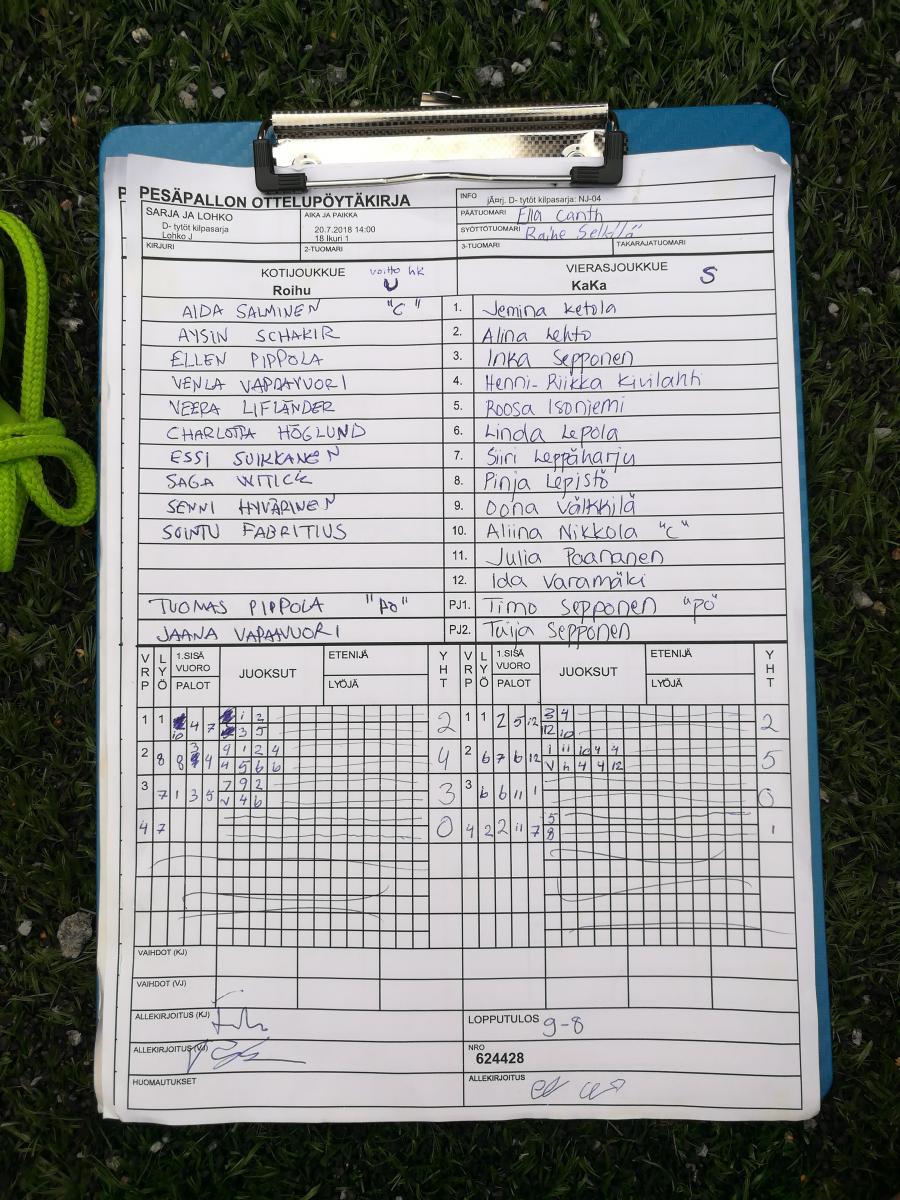 PESÄPALLON OTTELUPÖYTÄKIRJA
SARJA JA LOHKO
D- tytöt kilpasarja
Lohko J
AIKA JA PAIKKA
20.7.2018 14:00
18 Ikuri 1
INFO jÄ¤rj. D- tytöt kilpasarja: NJ-04
PÄÄTUOMARI Ella Canth
SYÖTTÖTUOMARI
KIRJURI 2-TUOMARI 3-TUOMARI TAKARAJATUOMARI
KOTIJOUKKUE voitto hk U
Roihu
VIERASJOUKKUE S
KaKa
AIDA SALMINEN "C" 1. Jemina Ketola
AYSIN SCHAKIR 2. Alina Lehto
ELLEN PIPPOLA 3. Inka Sepponen
VENLA VAPAAVUORI 4. Henni-Riikka Kivilahti
VEERA LIFLÄNDER 5. Roosa Isoniemi
CHARLOTTA HÖGLUND 6. Linda Lepola
ESSI SUIKKANEN 7. Siiri Leppäharju
SAGA WITICK 8. Pinja Lepistö
SENNI HYVÄRINEN 9. Oona Välkkilä
SOINTU FABRITIUS 10. Aliina Nikkola "C"
11. Julia Paananen
12. Ida Varamäki
TUOMAS PIPPOLA "PÖ" PJ1. Timo Sepponen "PÖ"
JAANA VAPAAVUORI PJ2. Taija Sepponen
VRP LYÖ 1.SISÄ VUORO PALOT JUOKSUT ETENIJÄ LYÖJÄ YHT VRP LYÖ 1.SISÄ VUORO PALOT JUOKSUT ETENIJÄ LYÖJÄ YHT
1 1 10 4 7 1 2 2 1 1 2 5 12 3 4 2
3 5 12 10
2 8 8 3 4 9 1 2 4 4 2 6 7 6 12 1 11 10 4 4 5
4 5 6 6 V h 4 4 12
3 7 1 3 5 7 9 2 3 3 6 6 11 1 0
V 4 6
4 7 0 4 2 2 11 7 5 1
8
VAIHDOT (KJ)
VAIHDOT (VJ)
ALLEKIRJOITUS (KJ)
LOPPUTULOS 9-8
ALLEKIRJOITUS (VJ)
NRO
624428
HUOMAUTUKSET
ALLEKIRJOITUS